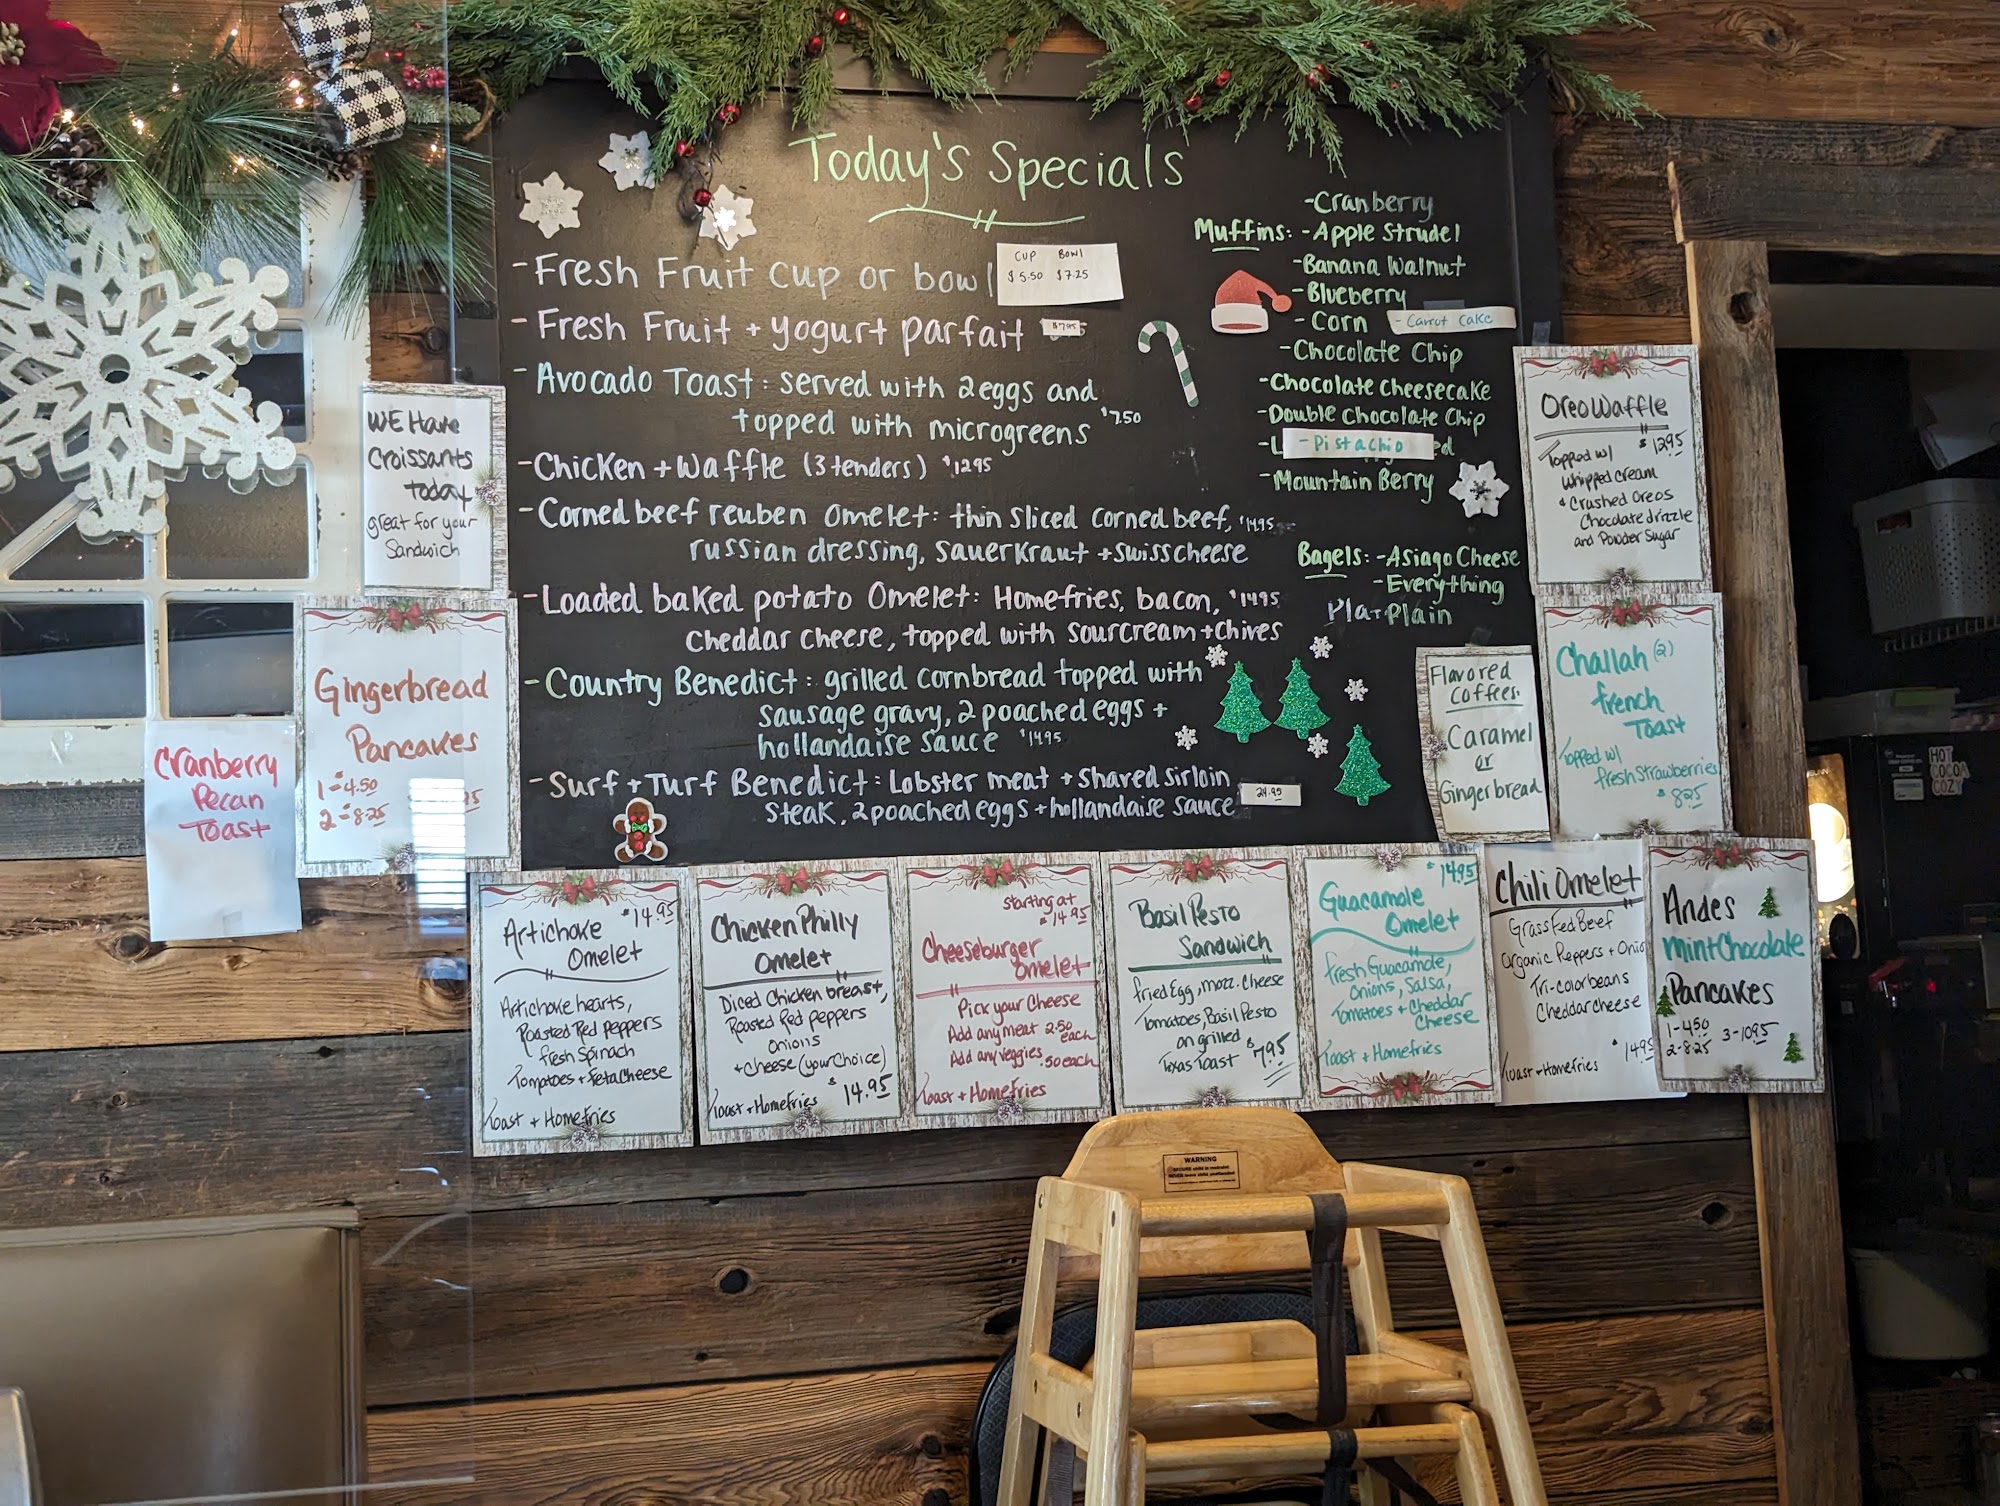 Today's Specials
- Fresh Fruit cup or bowl
CUP BOWL
$5.50 $7.25
- Fresh Fruit + yogurt parfait $7.95
- Avocado Toast: served with 2 eggs and
topped with microgreens $7.50
- Chicken + Waffle (3 tenders) $12.95
- Corned beef reuben Omelet: thin sliced corned beef, $14.95
russian dressing, sauerkraut + swiss cheese
- Loaded baked potato Omelet: Homefries, bacon, $14.95
cheddar cheese, topped with sourcream + chives
- Country Benedict: grilled cornbread topped with
sausage gravy, 2 poached eggs +
hollandaise sauce $14.95
- Surf + Turf Benedict: Lobster meat + shaved sirloin
steak, 2 poached eggs + hollandaise sauce 24.95
- Cranberry
Muffins: - Apple Strudel
- Banana Walnut
- Blueberry
- Corn - Carrot Cake
- Chocolate Chip
- Chocolate Cheesecake
- Double Chocolate Chip
- Pistachio
- Mountain Berry
Bagels: - Asiago Cheese
- Everything
- Plain
WE Have
Croissants
Today
great for your
Sandwich
Cranberry
Pecan
Toast
Gingerbread
Pancakes
1 = 4.50
2 = 8.25
Oreo Waffle
$12.95
Topped w/
whipped cream
& Crushed Oreos
Chocolate drizzle
and Powder Sugar
Challah (2)
french
Toast
Topped w/
fresh Strawberries
$8.25
Flavored
Coffees:
Caramel
or
Gingerbread
Artichoke $14.95
Omelet
Artichoke hearts,
Roasted Red peppers
fresh Spinach
Tomatoes + feta Cheese
Toast + Homefries
Chicken Philly
Omelet
Diced Chicken breast,
Roasted Red peppers
onions
+ cheese (your choice)
Toast + Homefries $14.95
starting at
$14.95
Cheeseburger
omelet
Pick your Cheese
Add any meat 2.50 each
Add any veggies .50 each
Toast + Homefries
Basil Pesto
Sandwich
fried Egg, mozz. cheese
Tomatoes, Basil Pesto
on grilled
Texas Toast $7.95
$14.95
Guacamole
Omelet
fresh Guacamole,
Onions, Salsa,
Tomatoes + Cheddar
Cheese
Toast + Homefries
Chili Omelet
Grass Fed Beef
organic Peppers + Onio
Tri-color beans
Cheddar cheese
$14.95
Toast + Homefries
Andes
Mint Chocolate
Pancakes
1-4.50
2-8.25 3-10.95
WARNING
HOT
COCOA
COZY